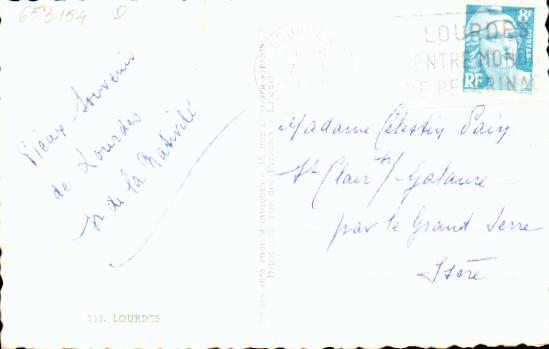 653154 D
Pieux Souvenir
de Lourdes
Sr de la Nativité
533. LOURDES
8F
POSTES
RF
LOURDES
CENTRE MONDIAL
DE PELERINAGE
Madame Célestin Pain
St Clair s/ Galaure
par le Grand Serre
Isère